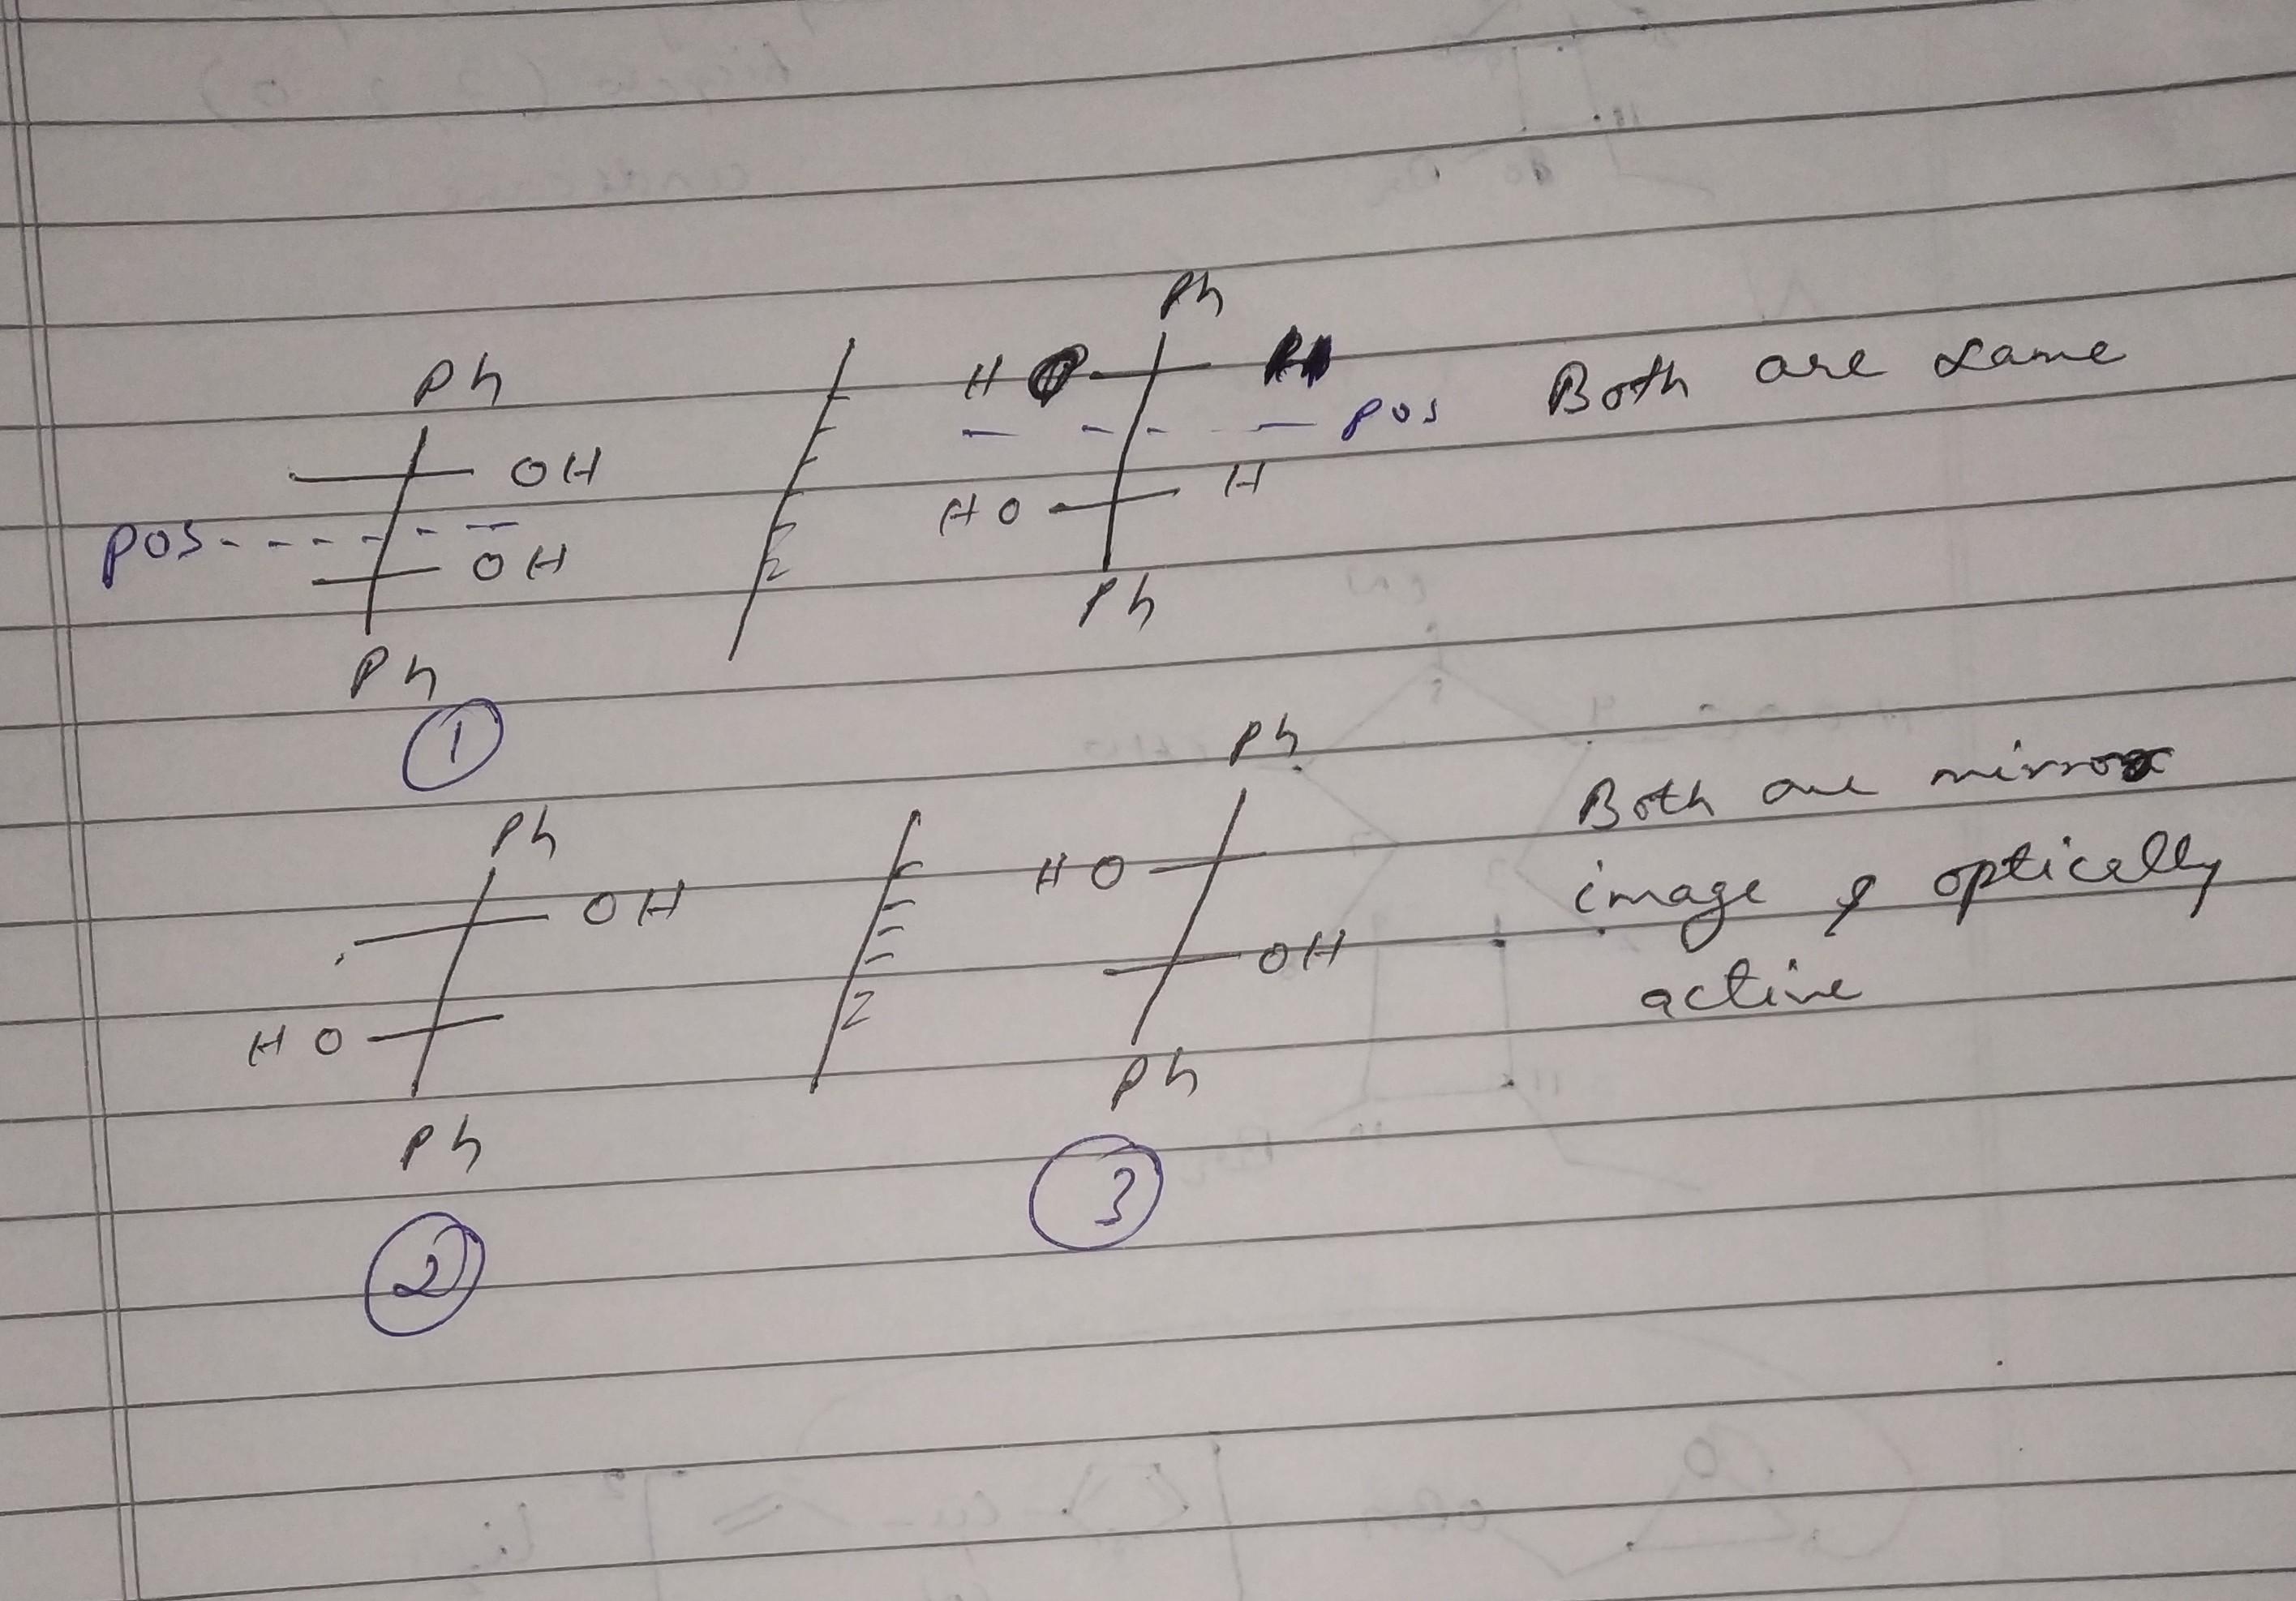 Ph
Ph
HO
OH
pos
Both are same
pos
HO H
OH
Ph
Ph
1
Ph
Ph
Both are mirror
OH
HO
image & optically
OH
active
HO
Ph
Ph
2
3